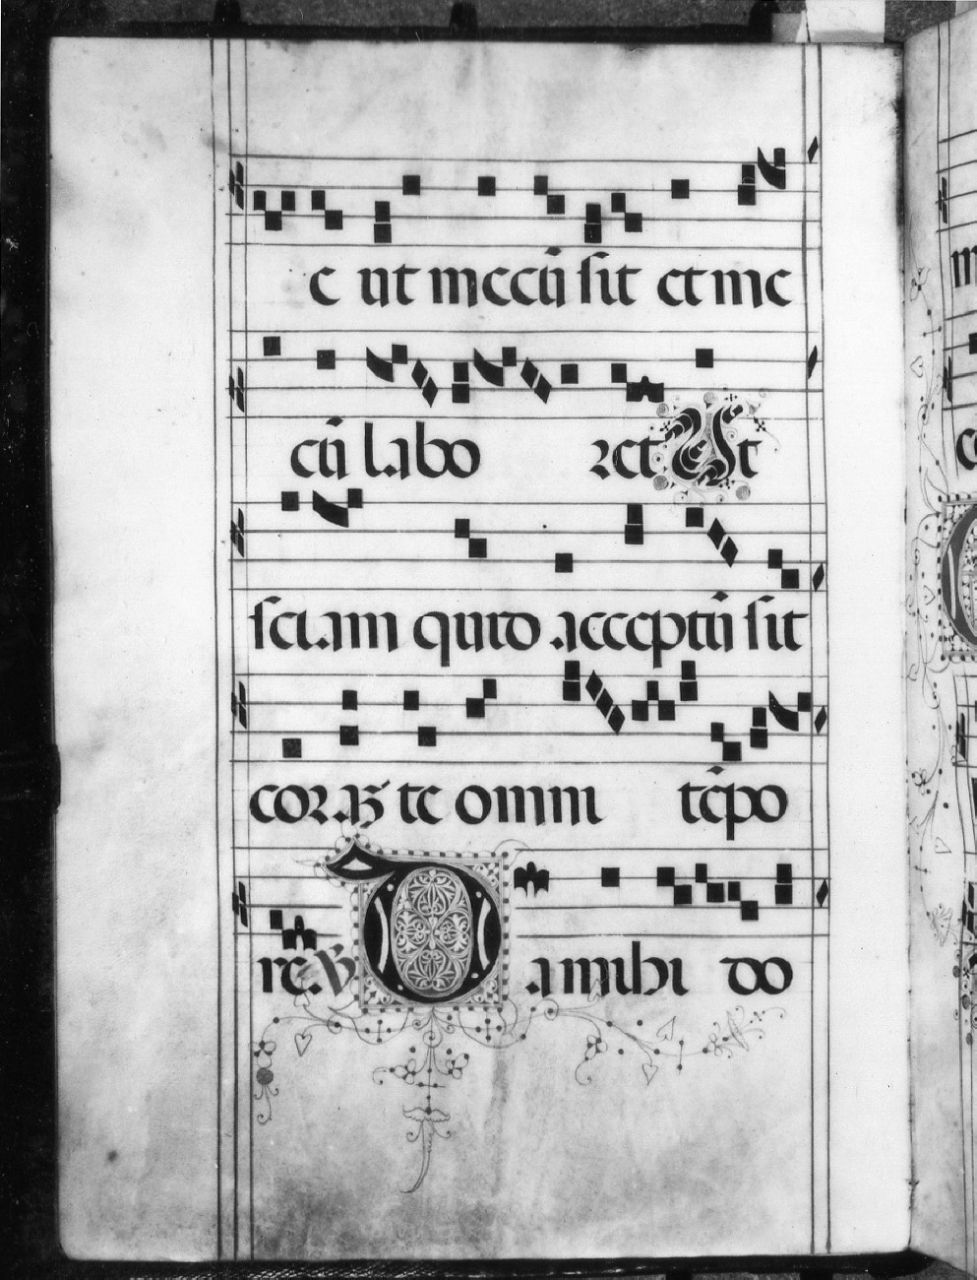 e ut mecū sit et me
cū labo ret Ut
sciam quid acceptū sit
coraz te omni tēpo
re. ℣ Da mihi do